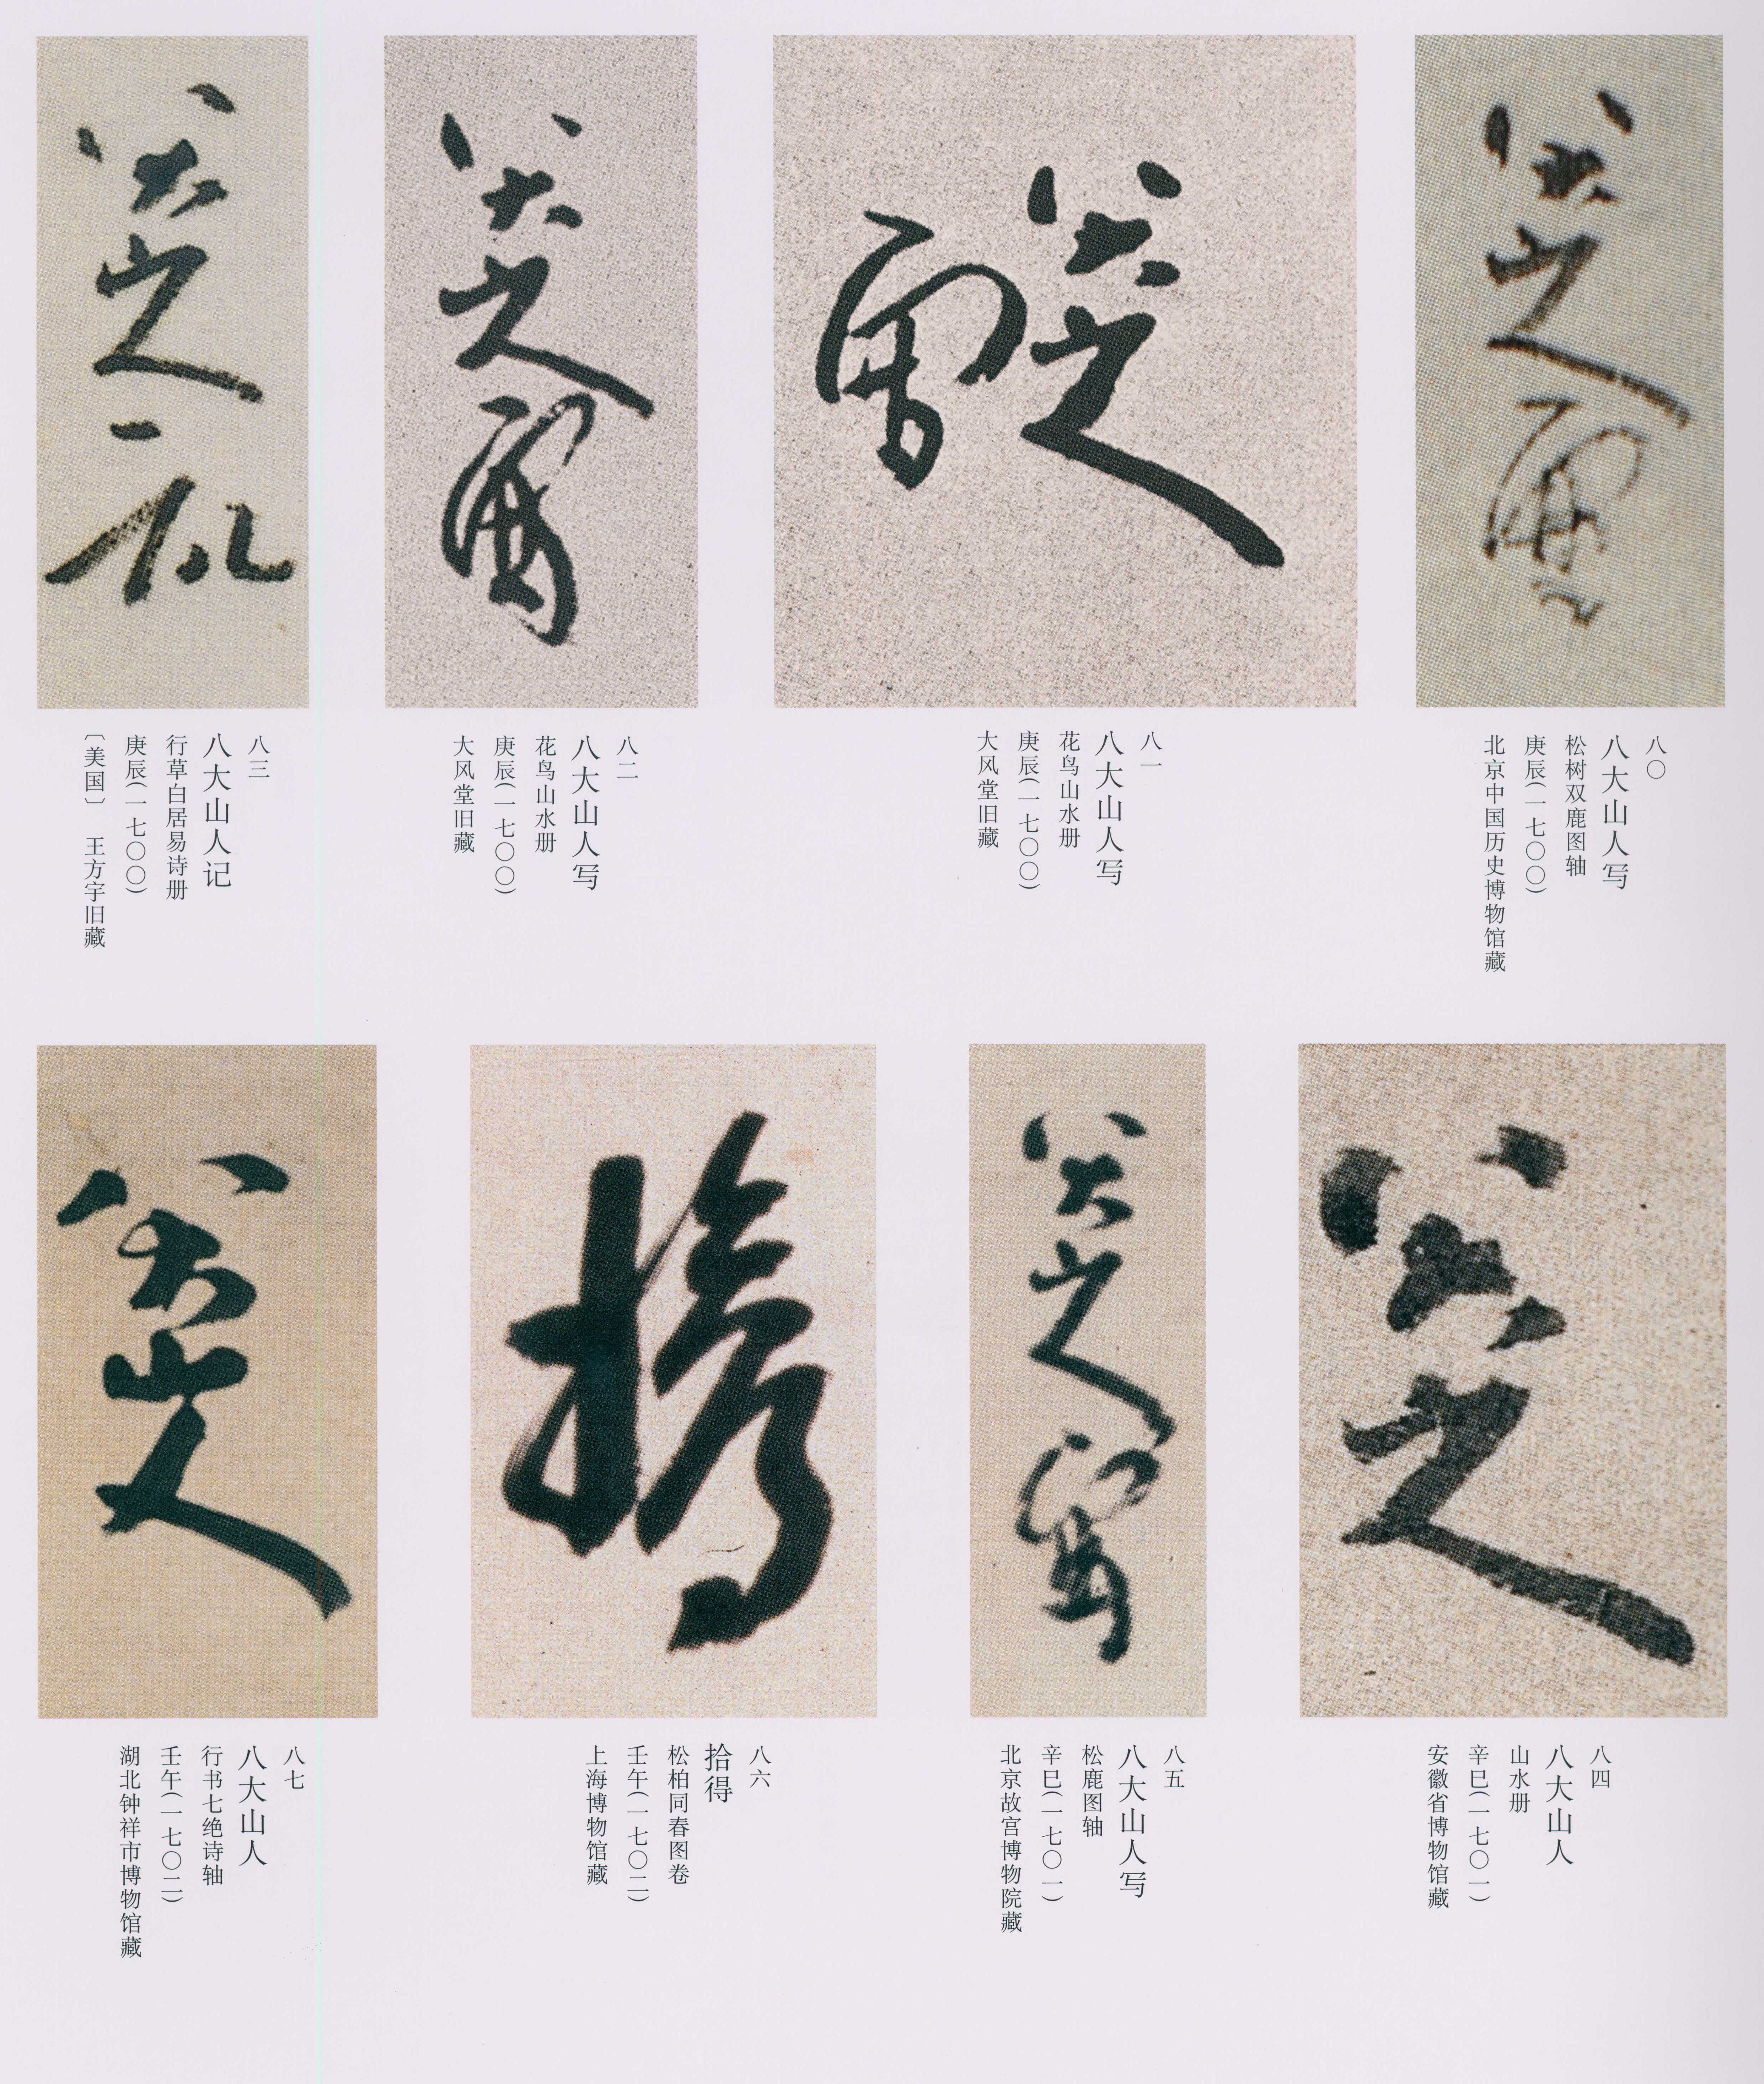 八大山人写
八〇
八大山人写
松树双鹿图轴
庚辰(一七〇〇)
北京中国历史博物馆藏
八大山人写
八一
八大山人写
花鸟山水册
庚辰(一七〇〇)
大风堂旧藏
八大山人写
八二
八大山人写
花鸟山水册
庚辰(一七〇〇)
大风堂旧藏
八大山人记
八三
八大山人记
行草白居易诗册
庚辰(一七〇〇)
〔美国〕 王方宇旧藏
八大山人
八四
八大山人
山水册
辛巳(一七〇一)
安徽省博物馆藏
八大山人写
八五
八大山人写
松鹿图轴
辛巳(一七〇一)
北京故宫博物院藏
拾得
八六
拾得
松柏同春图卷
壬午(一七〇二)
上海博物馆藏
八大山人
八七
八大山人
行书七绝诗轴
壬午(一七〇二)
湖北钟祥市博物馆藏